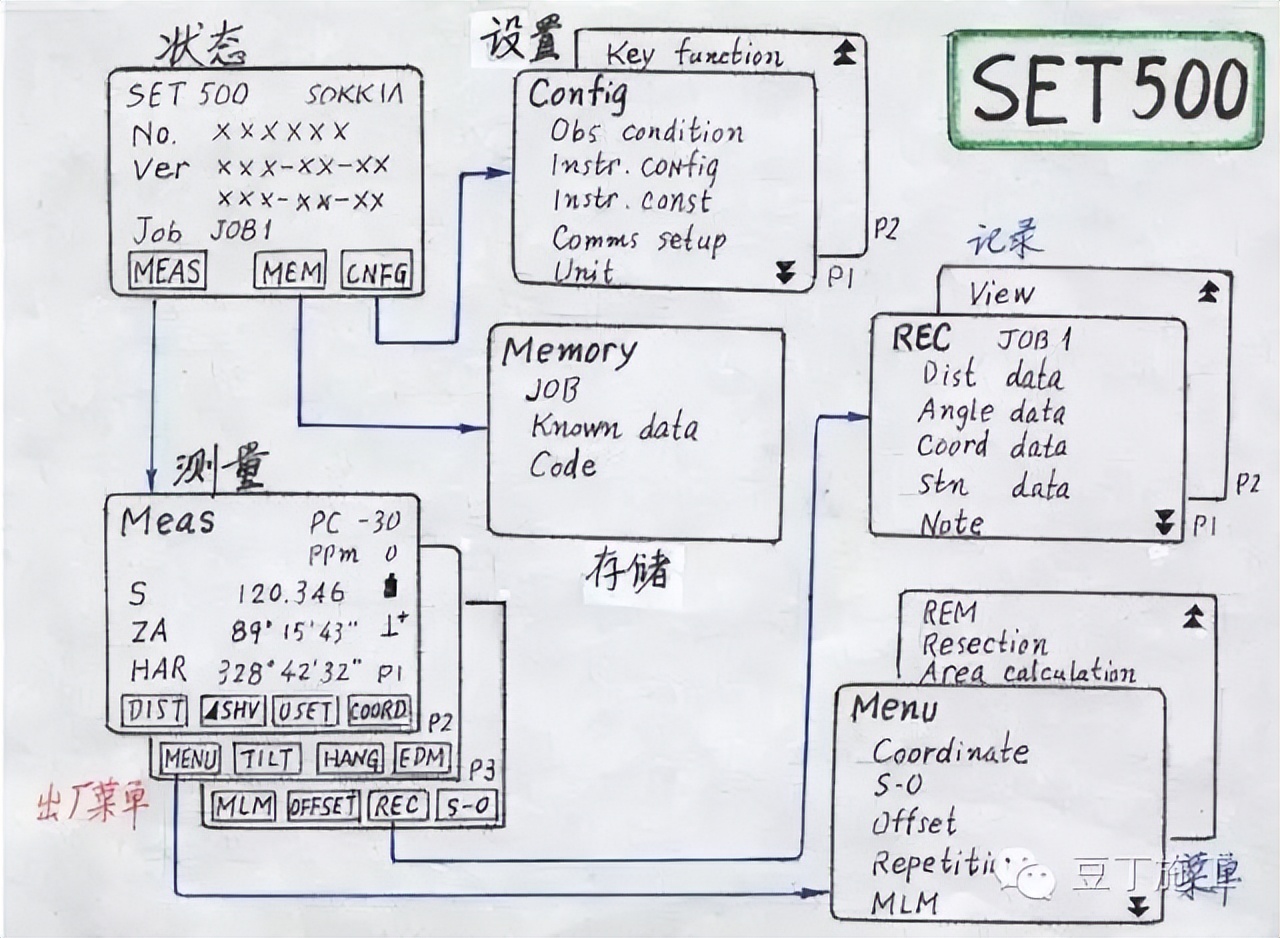 SET500
状态
SET 500 SOKKIA
No. ××××××
Ver ×××-××-××
×××-××-××
Job JOB1
MEAS MEM CNFG
设置
Key function
Config
Obs condition
Instr. config
Instr. const
Comms setup
Unit
P2
P1
Memory
JOB
Known data
Code
存储
记录
View
REC JOB1
Dist data
Angle data
Coord data
Stn data
Note
P2
P1
测量
Meas PC -30
ppm 0
S 120.346
ZA 89°15'43"
HAR 328°42'32" P1
DIST ◢SHV 0SET COORD
P2
MENU TILT HANG EDM
P3
MLM OFFSET REC S-O
出厂菜单
REM
Resection
Area calculation
Menu
Coordinate
S-O
Offset
MLM
菜单
豆丁